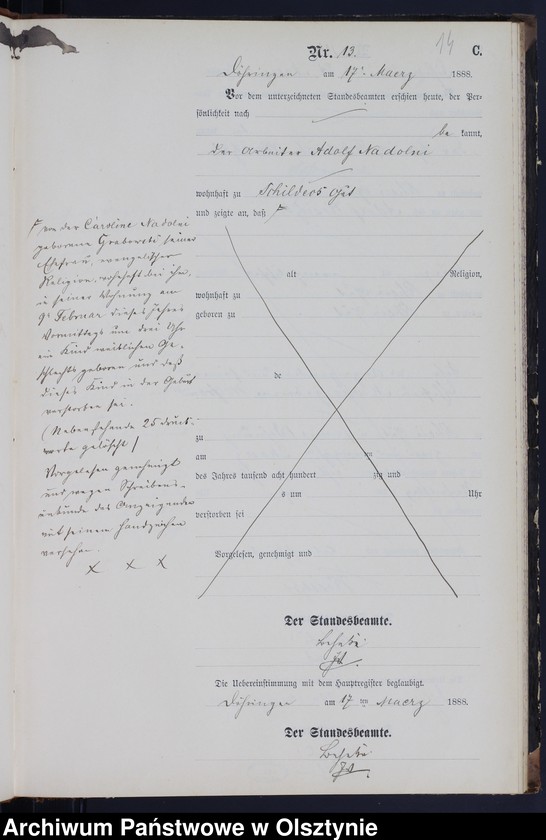 14
Nr. 13. C.
Döhringen am 17t Maerz 1888.
Vor dem unterzeichneten Standesbeamten erschien heute, der Per-
sönlichkeit nach
be kannt,
der Arbeiter Adolf Nadolni
wohnhaft zu Schilders Gut
und zeigte an, daß
von der Caroline Nadolni
geborene Grabowski seiner
Ehefrau, evangelischer
Religion, wohnhaft bei ihm,
in seiner Wohnung am
9t Februar dieses Jahres
Vormittags um drei Uhr
ein Kind weiblichen Ge-
schlechts geboren und daß
dieses Kind in der Geburt
verstorben sei.
(Nebenstehende 25 Druck-
worte gelöscht)
Vorgelesen genehmigt
und wegen Schreibens-
unkunde des Anzeigenden
mit seinem Handzeichen
versehen.
x x x
alt Religion,
wohnhaft zu
geboren zu
de
zu
am ten
des Jahres tausend acht hundert zig und
s um Uhr
verstorben sei
Vorgelesen, genehmigt und
Der Standesbeamte.
Die Uebereinstimmung mit dem Hauptregister beglaubigt.
Döhringen am 17 ten Maerz 1888.
Der Standesbeamte.
Archiwum Państwowe w Olsztynie